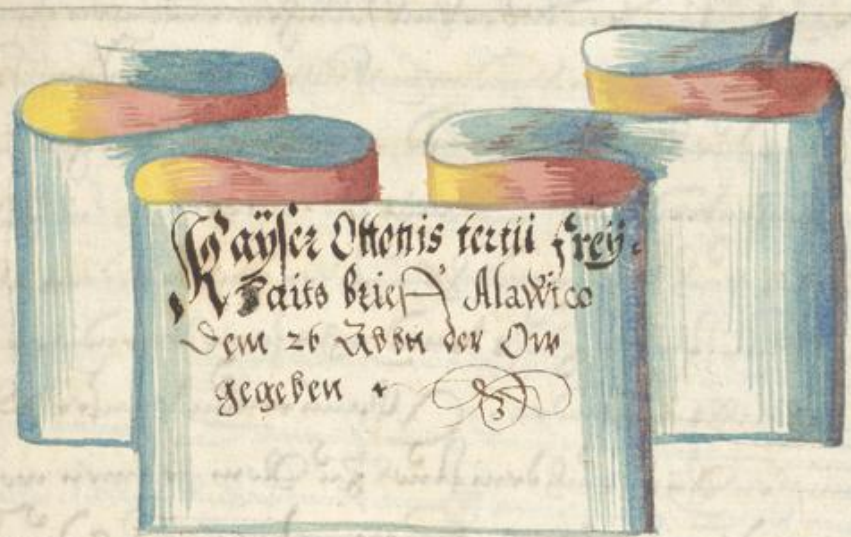 Kaÿser Ottonis tertii freÿ-
haits brieff Alawico
dem 26 Abbt der Ow
gegeben